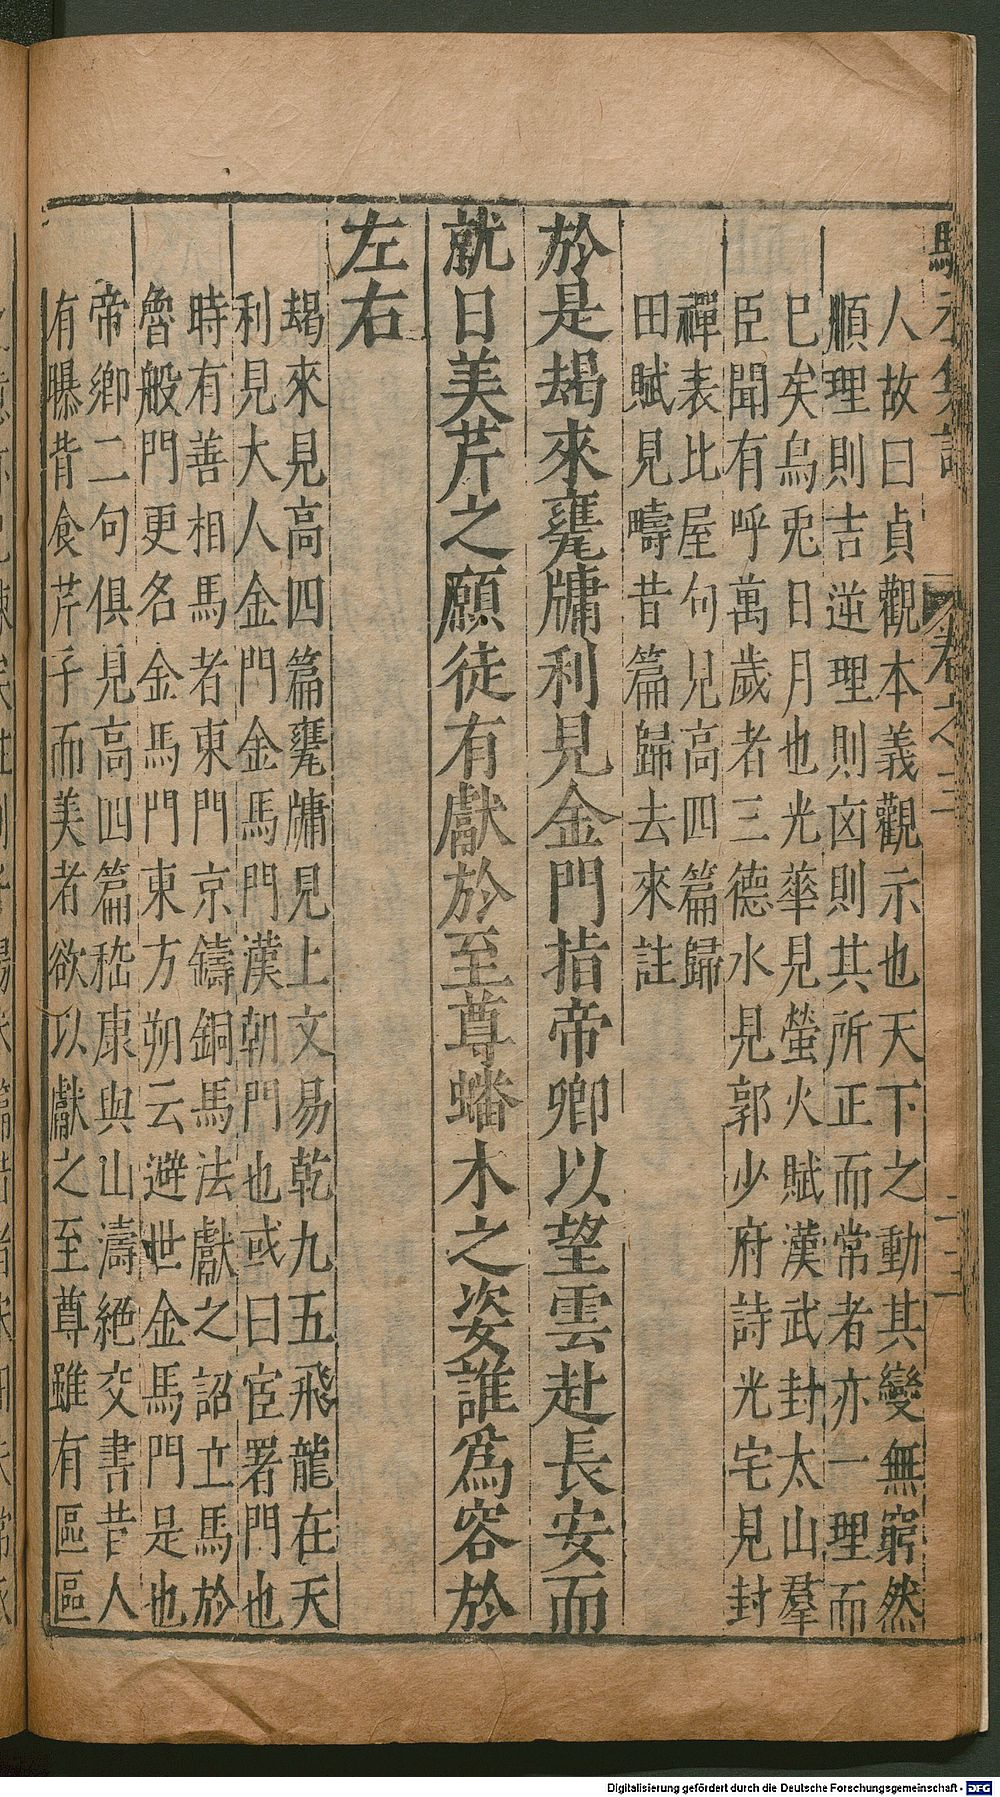 人故曰貞觀本義觀示也天下之動其變無窮然
順理則吉逆理則凶則其所正而常者亦一理而
巳矣烏兎日月也光華見螢火賦漢武封太山羣
臣聞有呼萬歲者三德水見郭少府詩光宅見封
禪表比屋句見高四篇歸
田賦見疇昔篇歸去來註
於是朅來甕牗利見金門指帝鄉以望雲赴長安而
就日美芹之願徒有獻於至尊蟠木之姿誰爲容於
左右
朅來見高四篇甕牗見上文易乾九五飛龍在天
利見大人金門金馬門漢朝門也或曰宦署門也
時有善相馬者東門京鑄銅馬法獻之詔立馬於
魯般門更名金馬門東方朔云避世金馬門是也
帝鄉二句俱見高四篇嵇康與山濤絕交書昔人
有曝背食芹子而美者欲以獻之至尊雖有區區
卷之三
二十二
Digitalisierung gefördert durch die Deutsche Forschungsgemeinschaft - DFG